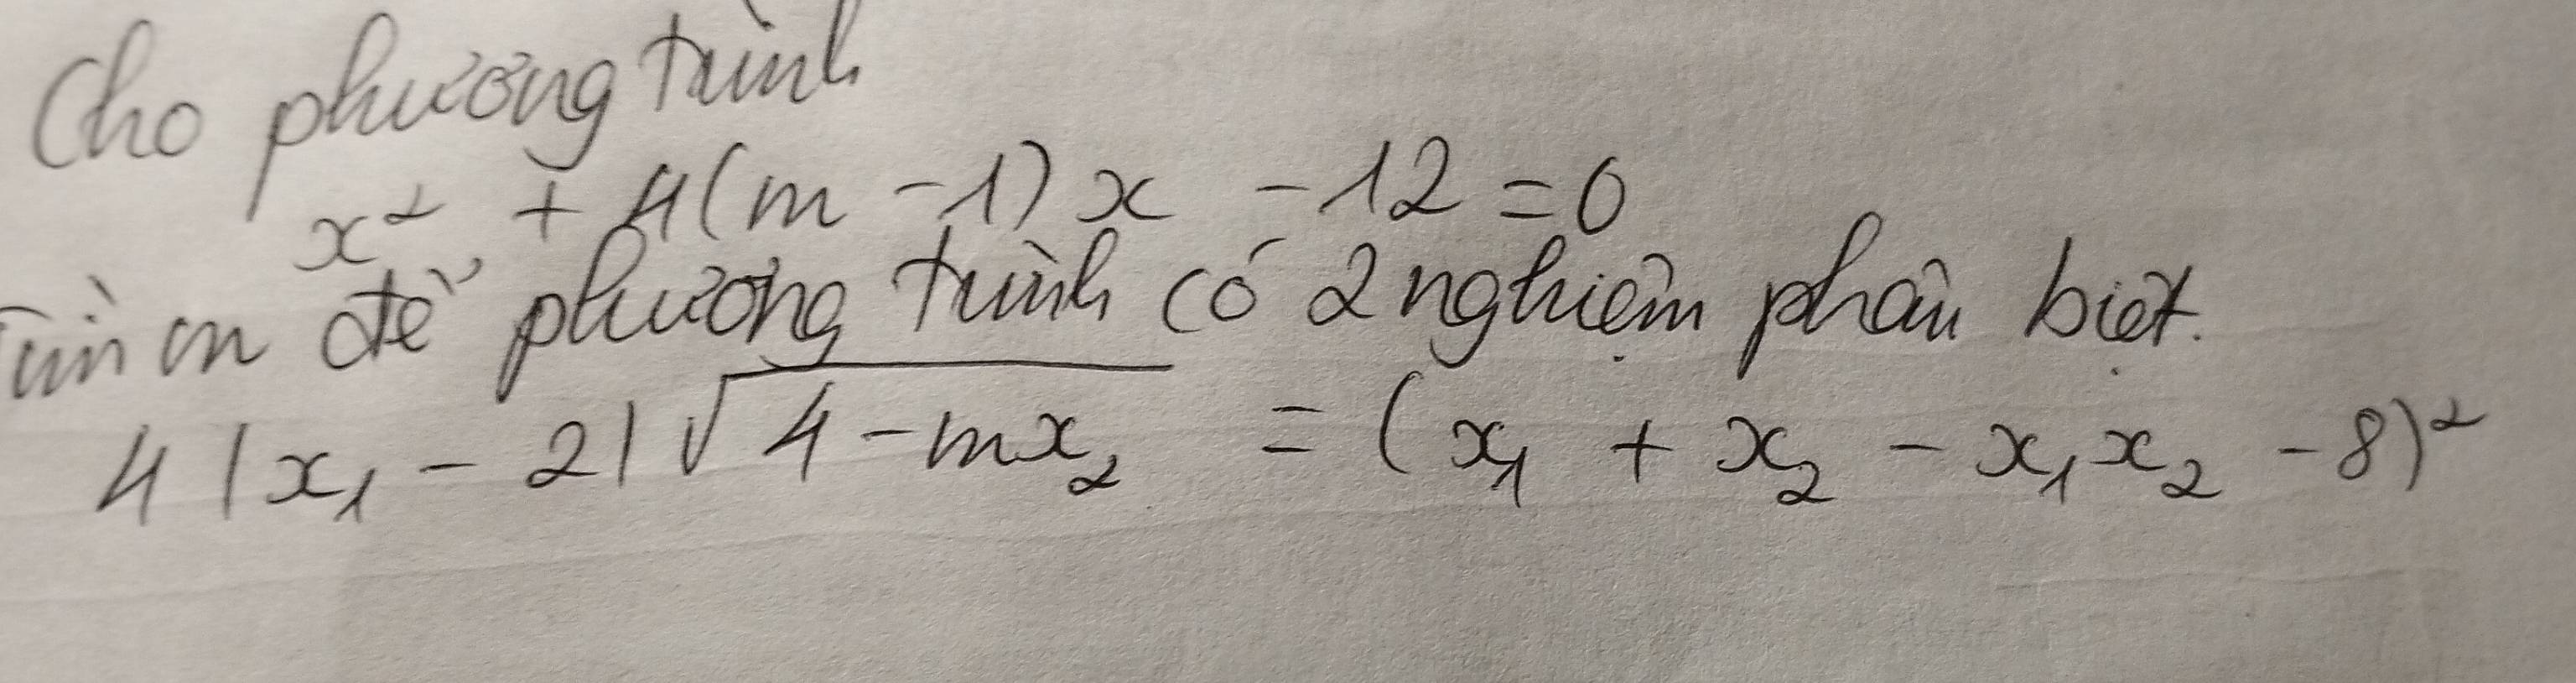 Cho phương trình
x² + 4(m - 1)x - 12 = 0
Tìm m để phương trình có 2 nghiệm phân biệt.
4|x₁ - 2|√(4 - mx₂) = (x₁ + x₂ - x₁x₂ - 8)²